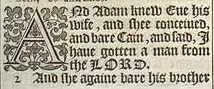 AND Adam knew Eve his
wife, and shee conceiued,
and bare Cain, and said, I
haue gotten a man from
the LORD.
2 And she againe bare his brother